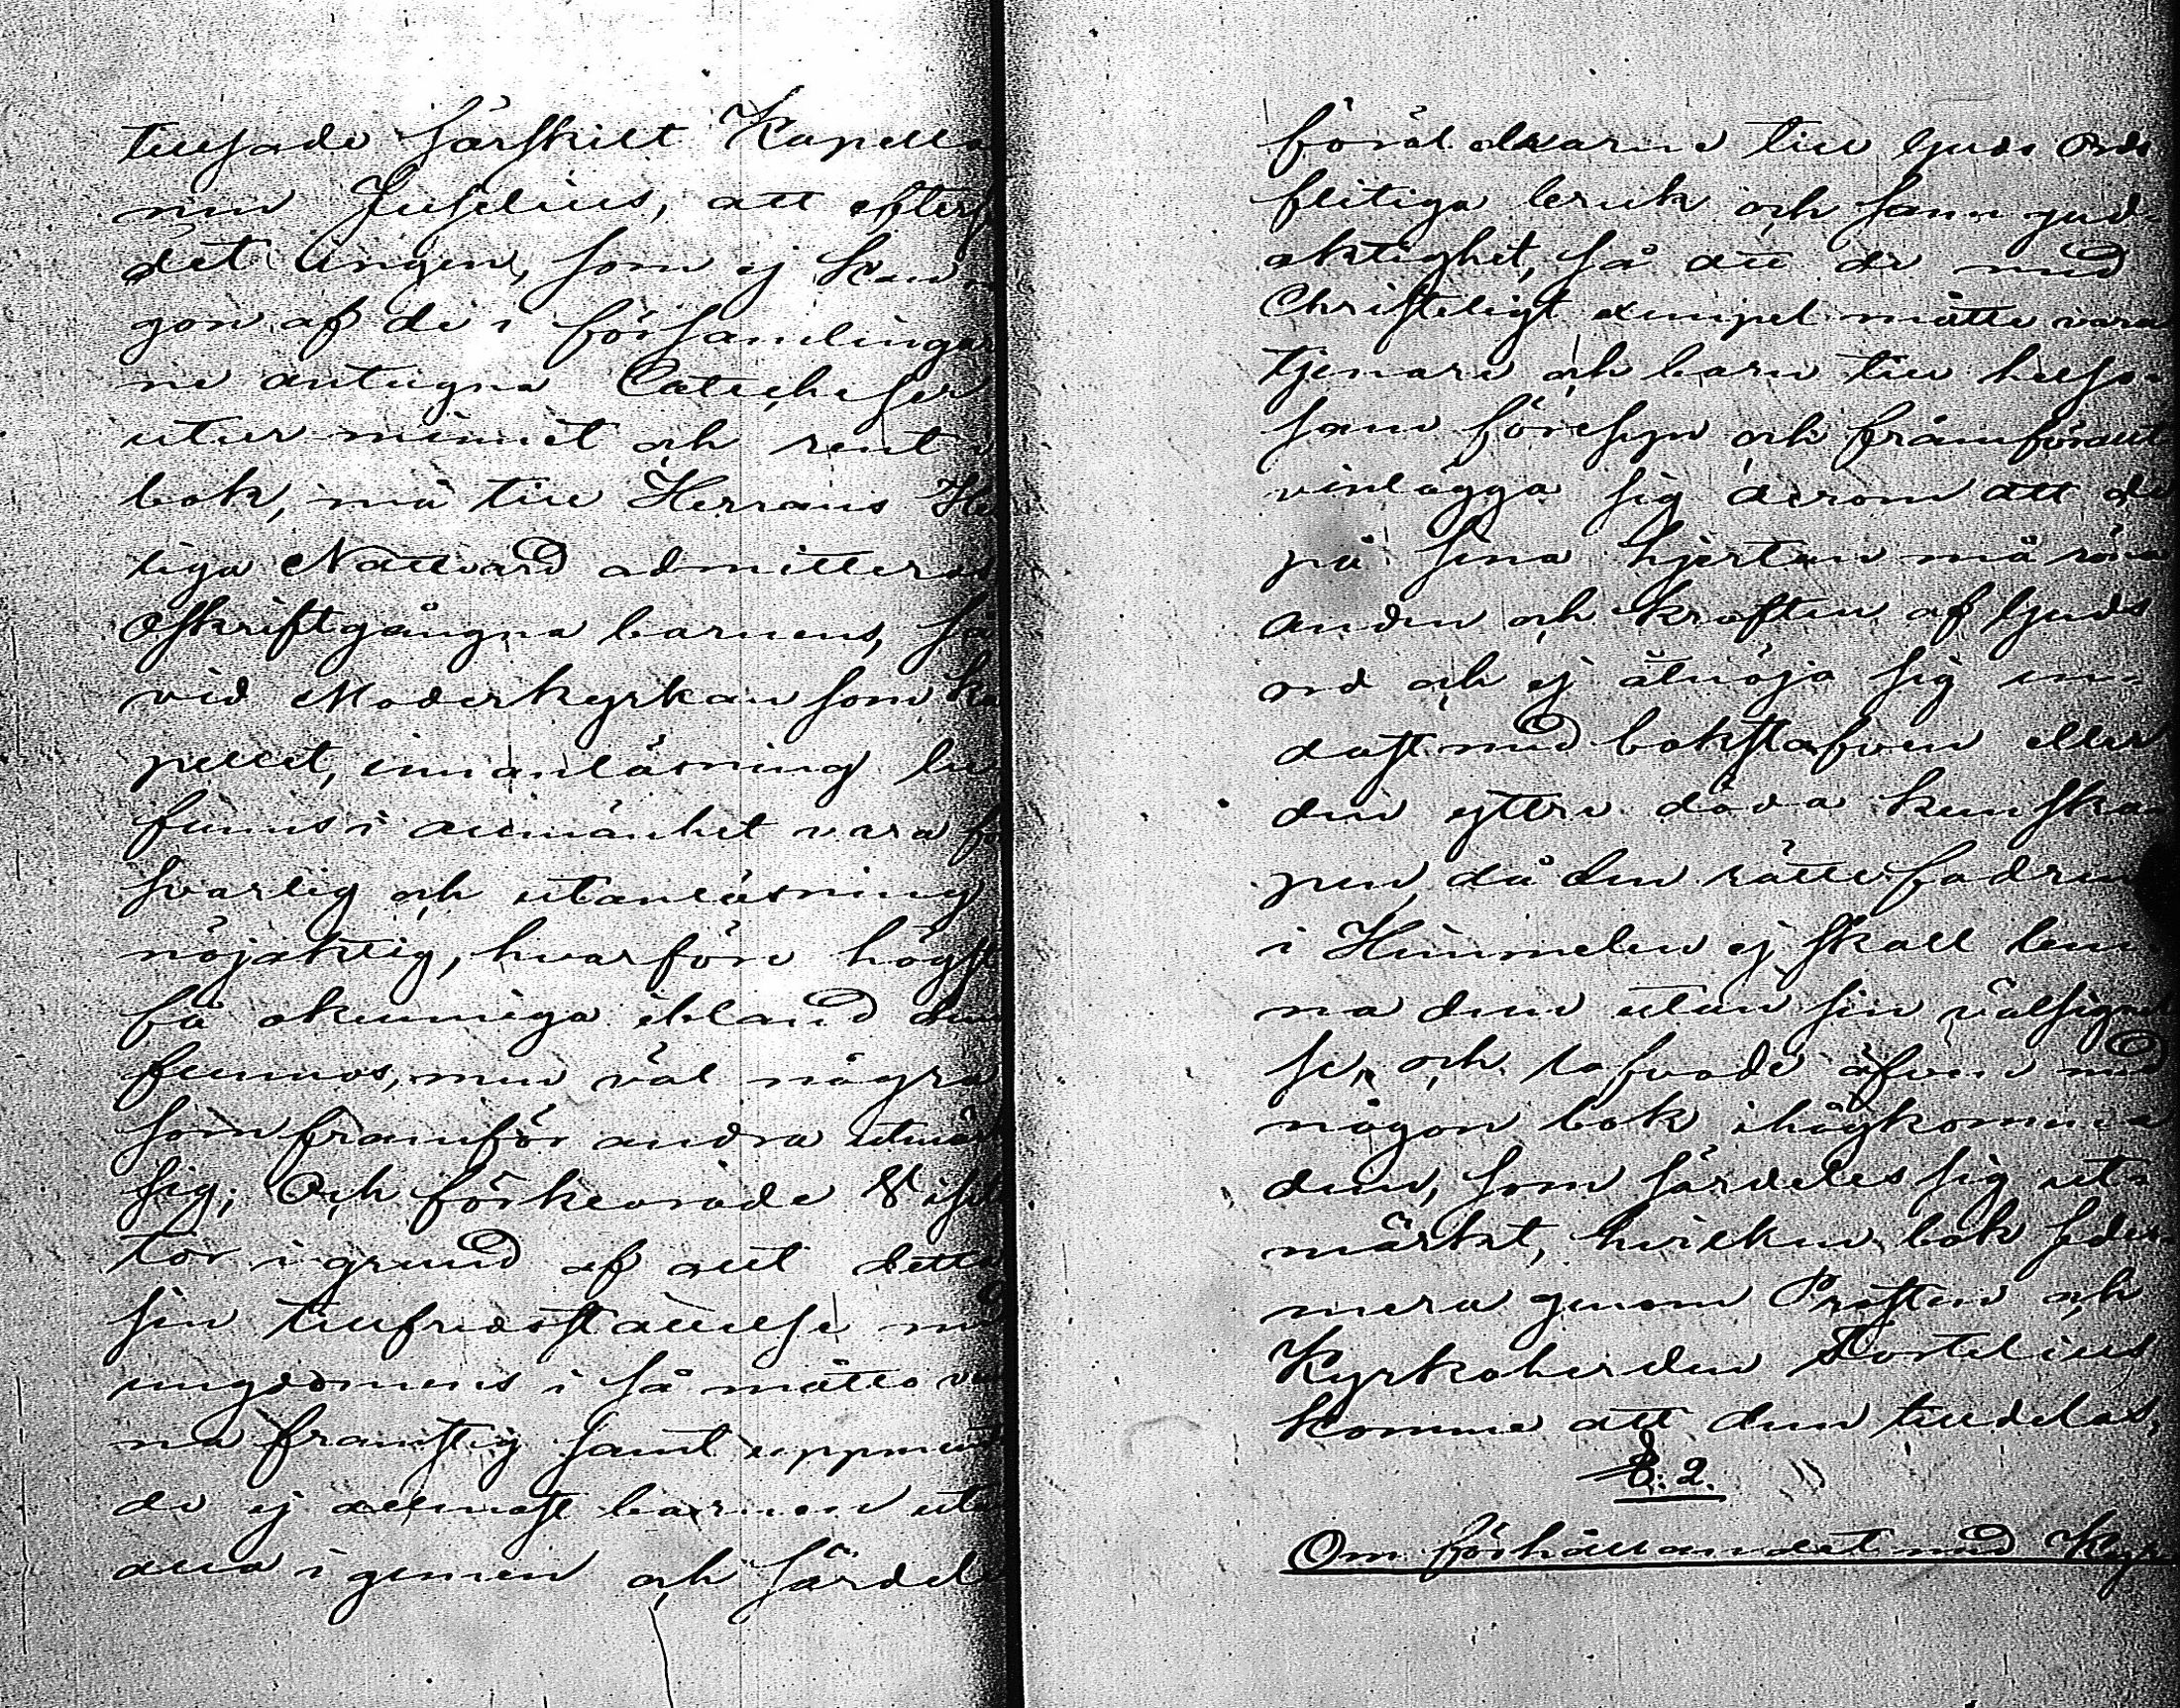 tillsade särskilt Kapella
nen Juselius, att efter
det ingen, som ej kan
gon af de i församlinga
ne antagna Catecheser
utur minnet och rent i
bok, må till Herrans He
liga Nattvard admitteras
Oskriftgångna barnens, så
vid Moderkyrkan som ka
pellet, innanläsning be
funns i allmänhet vara för
svarlig och utanläsning
nöjaktig, hvarföre högst
få okunniga ibland dem
funnos, men väl några
som framför andra utmärk
sig; Och förklarade Visita
tor i grund af allt detta
sin tillfredsställelse med
ungdomens i så måtto vun
na framsteg samt uppmun
de ej allenast barnen utan
alla i gemen och särdeles
föräldrarne till Guds Ords
flitiga bruk och sann gud-
aktighet, så att de med
Christeligt exempel måtte vara
tjenare och barn till helso-
sam föresyn och framförallt
vinlägga sig derom att de
på sina hjertan må röna
anden och kraften af Guds
ord och ej åtnöja sig en-
dast med bokstafven eller
den yttre döda kunska
pen, då den rätte fadren
i Himmelen ej skall lem
na dem utan sin välsignel
se, och lofvade äfven med
någon bok ihågkomma
dem, som särdeles sig ut-
märkt, hvilken bok seder
mera genom Prosten och
Kyrkoherden Tortelius
komme att dem tilldelas,
§. 2.
Om förhållandet med Kyr